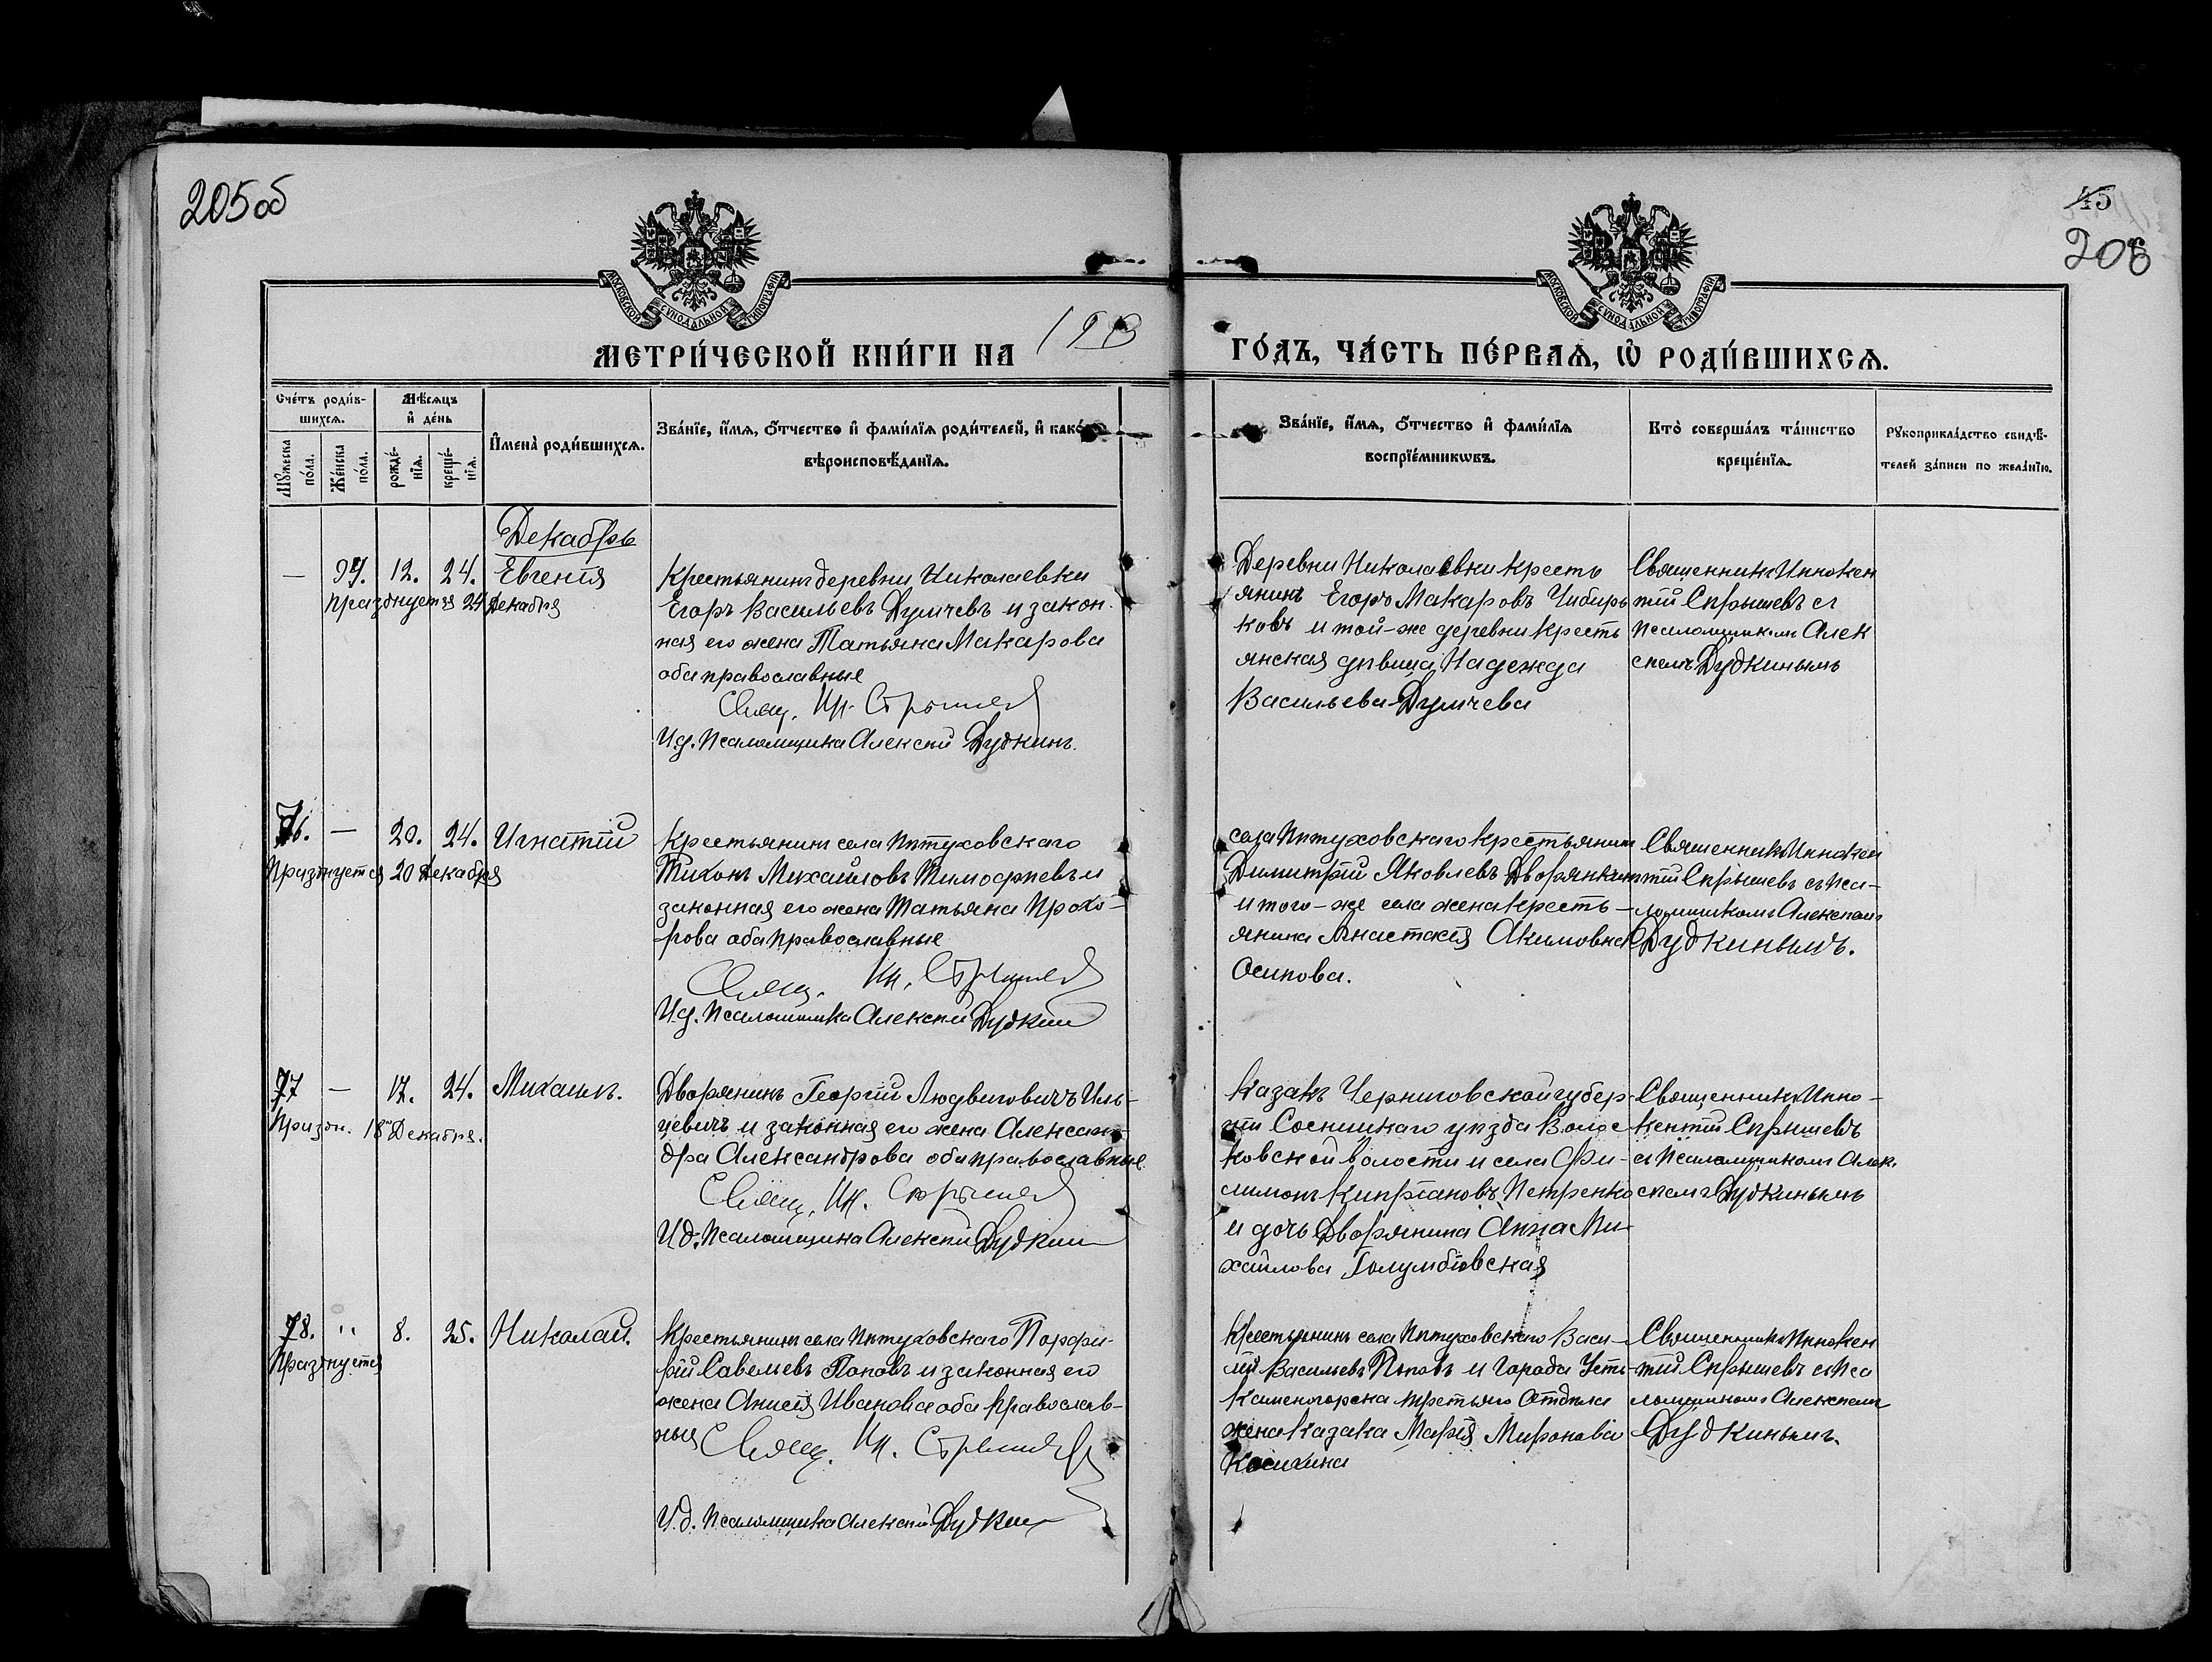 205об
45
206
МОСКОВСКОЙ СУНОДАЛЬНОЙ ТИПОГРАФІИ
МОСКОВСКОЙ СУНОДАЛЬНОЙ ТИПОГРАФІИ
МЕТРИ́ЧЕСКОЙ КНИ́ГИ НА 1913
ГО́ДЪ, ЧА́СТЬ ПЕ́РВАѦ, Ѡ҆ РОДИ́ВШИХСѦ.
Сче́тъ роди́в-
шихсѧ.
Мѣ́сѧцъ
и҆ де́нь
Мꙋ́жеска
по́ла.
Же́нска
по́ла.
рожде́-
нїѧ.
креще́-
нїѧ.
И҆мена̀ роди́вшихсѧ.
Зва́нїе, и҆́мѧ, ѻ҆́тчество и҆ фами́лїѧ роди́телей, и҆ како́гѡ
вѣроисповѣ́данїѧ.
Зва́нїе, и҆́мѧ, ѻ҆́тчество и҆ фами́лїѧ
воспрїе́мникѡвъ.
Кто̀ соверша́лъ та́инство
креще́нїѧ.
Рꙋкоприкла́дство свидѣ́-
телей за́писи по жела́нїю.
Декабрь
— 12. 24. Евгенія
празднуется 24 Декабря
Крестьянинъ деревни Николаевки
Егоръ Васильевъ Думчевъ и закон-
ная его жена Татьяна Макарова
оба православные
Свящ. Ин. Спрышев
И.д. Псаломщика Алексѣй Дудкинъ.
Деревни Николаевки кресть
янинъ Егоръ Макаровъ Чибирь
ковъ и той-же деревни кресть
янская дѣвица Надежда
Васильева Думчева
Священникъ Иннокен
тій Спрышевъ съ
псаломщикомъ Алек
сѣемъ Дудкинымъ
76. — 20. 24. Игнатій
Празднуется 20 Декабря
Крестьянинъ села Пѣтуховскаго
Тихонъ Михаиловъ Тимофѣевъ и
законная его жена Татьяна Прохо-
рова оба православные
Свящ. Ин. Спрышев
И.д. Псаломщика Алексѣй Дудкин
села Пѣтуховскаго крестьянинъ
Димитрій Яковлевъ Дворянкинъ
и того-же села жена кресть-
янина Анастасія Акимовна
Осипова.
Священникъ Иннокен
тій Спрышевъ съ пса-
ломщикомъ Алексѣемъ
Дудкинымъ.
77 — 17. 24. Михаилъ.
Праздн. 18 Декабря.
Дворянинъ Георгій Людвиговичъ Иль-
цевичъ и законная его жена Алексан-
дра Александрова оба православные
Свящ. Ин. Спрышев
И.д. Псаломщика Алексѣй Дудкин
Казакъ Черниговской губер-
ніи Сосницкаго уѣзда Волос
ковской волости и села Фи-
лимонъ Кипріановъ Петренко
и дочь Дворянина Анна Ми-
хаилова Голумбіовская
Священникъ Инно-
кентій Спрышевъ
съ Псаломщикомъ Алек
сѣемъ Дудкинымъ
78. " 8. 25. Николай.
Празднуется
Крестьянинъ села Пѣтуховскаго Порфи-
рій Савельевъ Поповъ и законная его
жена Анисія Иванова оба православ-
ныя
Свящ. Ин. Спрышев
И.д. Псаломщика Алексѣй Дудкин
Крестьянинъ села Пѣтуховскаго Васи-
лій Васильевъ Поповъ и Города Усть-
Каменогорска третьяго Отдѣла
жена казака Марія Миронова
Касихина
Священникъ Иннокен
тій Спрышевъ съ Пса
ломщикомъ Алексѣемъ
Дудкинымъ.